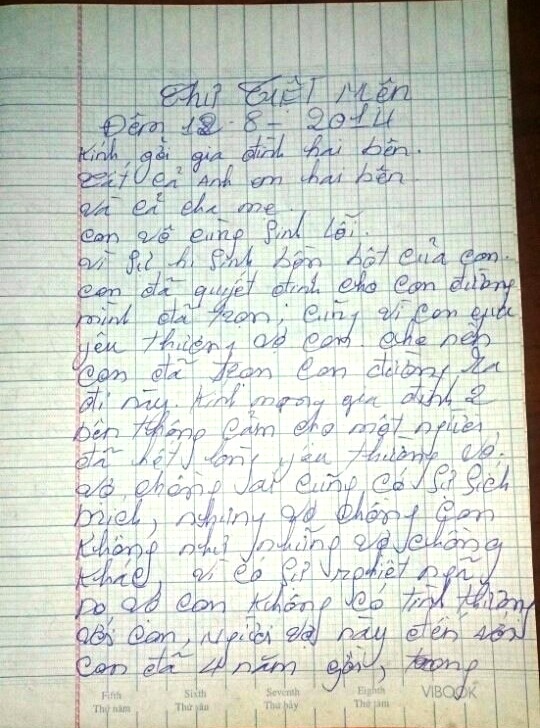 Thư Tuiệt Mên
Đêm 12-8-2014
Kính gởi gia đình hai bên.
tất cả anh em hai bên
và cả cha mẹ.
con vô cùng sinh lỗi.
vì sự hi sinh bồn bột của con.
con đã quyết định cho con đường
mình đã tron, cũng vì con quá
yêu thương vợ con cho nên
con đã tron con đường ra
đi này. kính mong gia đình 2
bên thông cảm cho một người
đã hết lòng yêu thương vợ.
vợ chồng ai cũng có sự sích
mích, nhưng vợ chồng con
không như những vợ chồng
khác, vì có sự nghiệt ngã
do vợ con không có tình thương
với con, người vợ này đến với
con đã 4 năm gồi, trong
Fifth
Thứ năm
Sixth
Thứ sáu
Seventh
Thứ bảy
Eighth
Thứ tám
VIBOOK